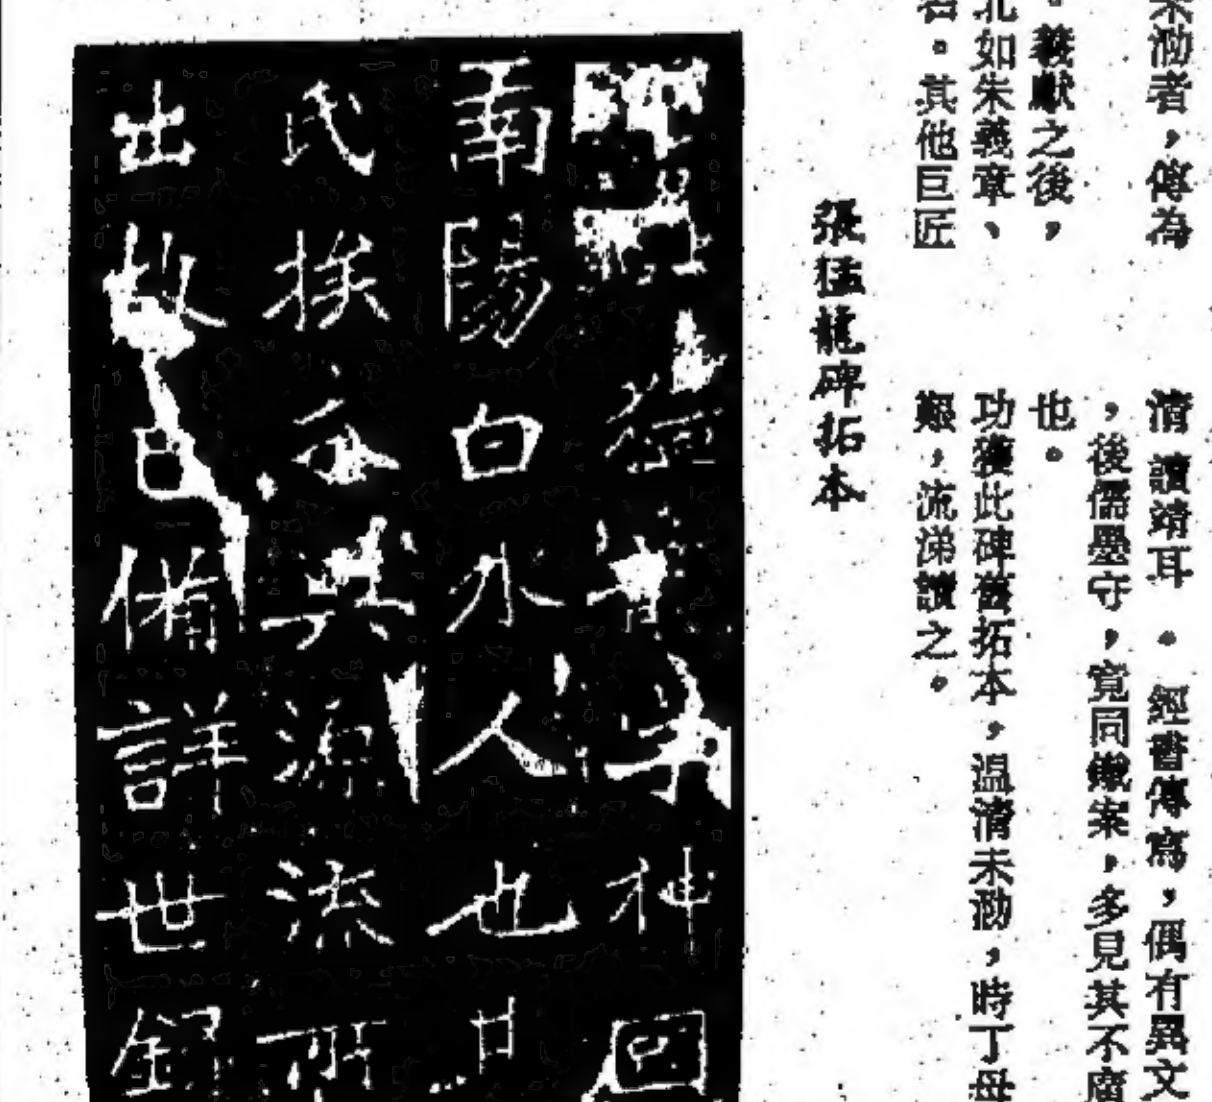 泐者，傳為
。羲獻之後，
北如朱義章、
。其他巨匠
清讀靖耳。經書傳寫，偶有異文
，後儒墨守，竟同鐵案，多見其不廣
也。
功獲此碑舊拓本，温清未泐，時丁母
艱，流涕讀之。
張猛龍碑拓本
神
南陽白水人也
氏族 其源流
出故已備詳世録